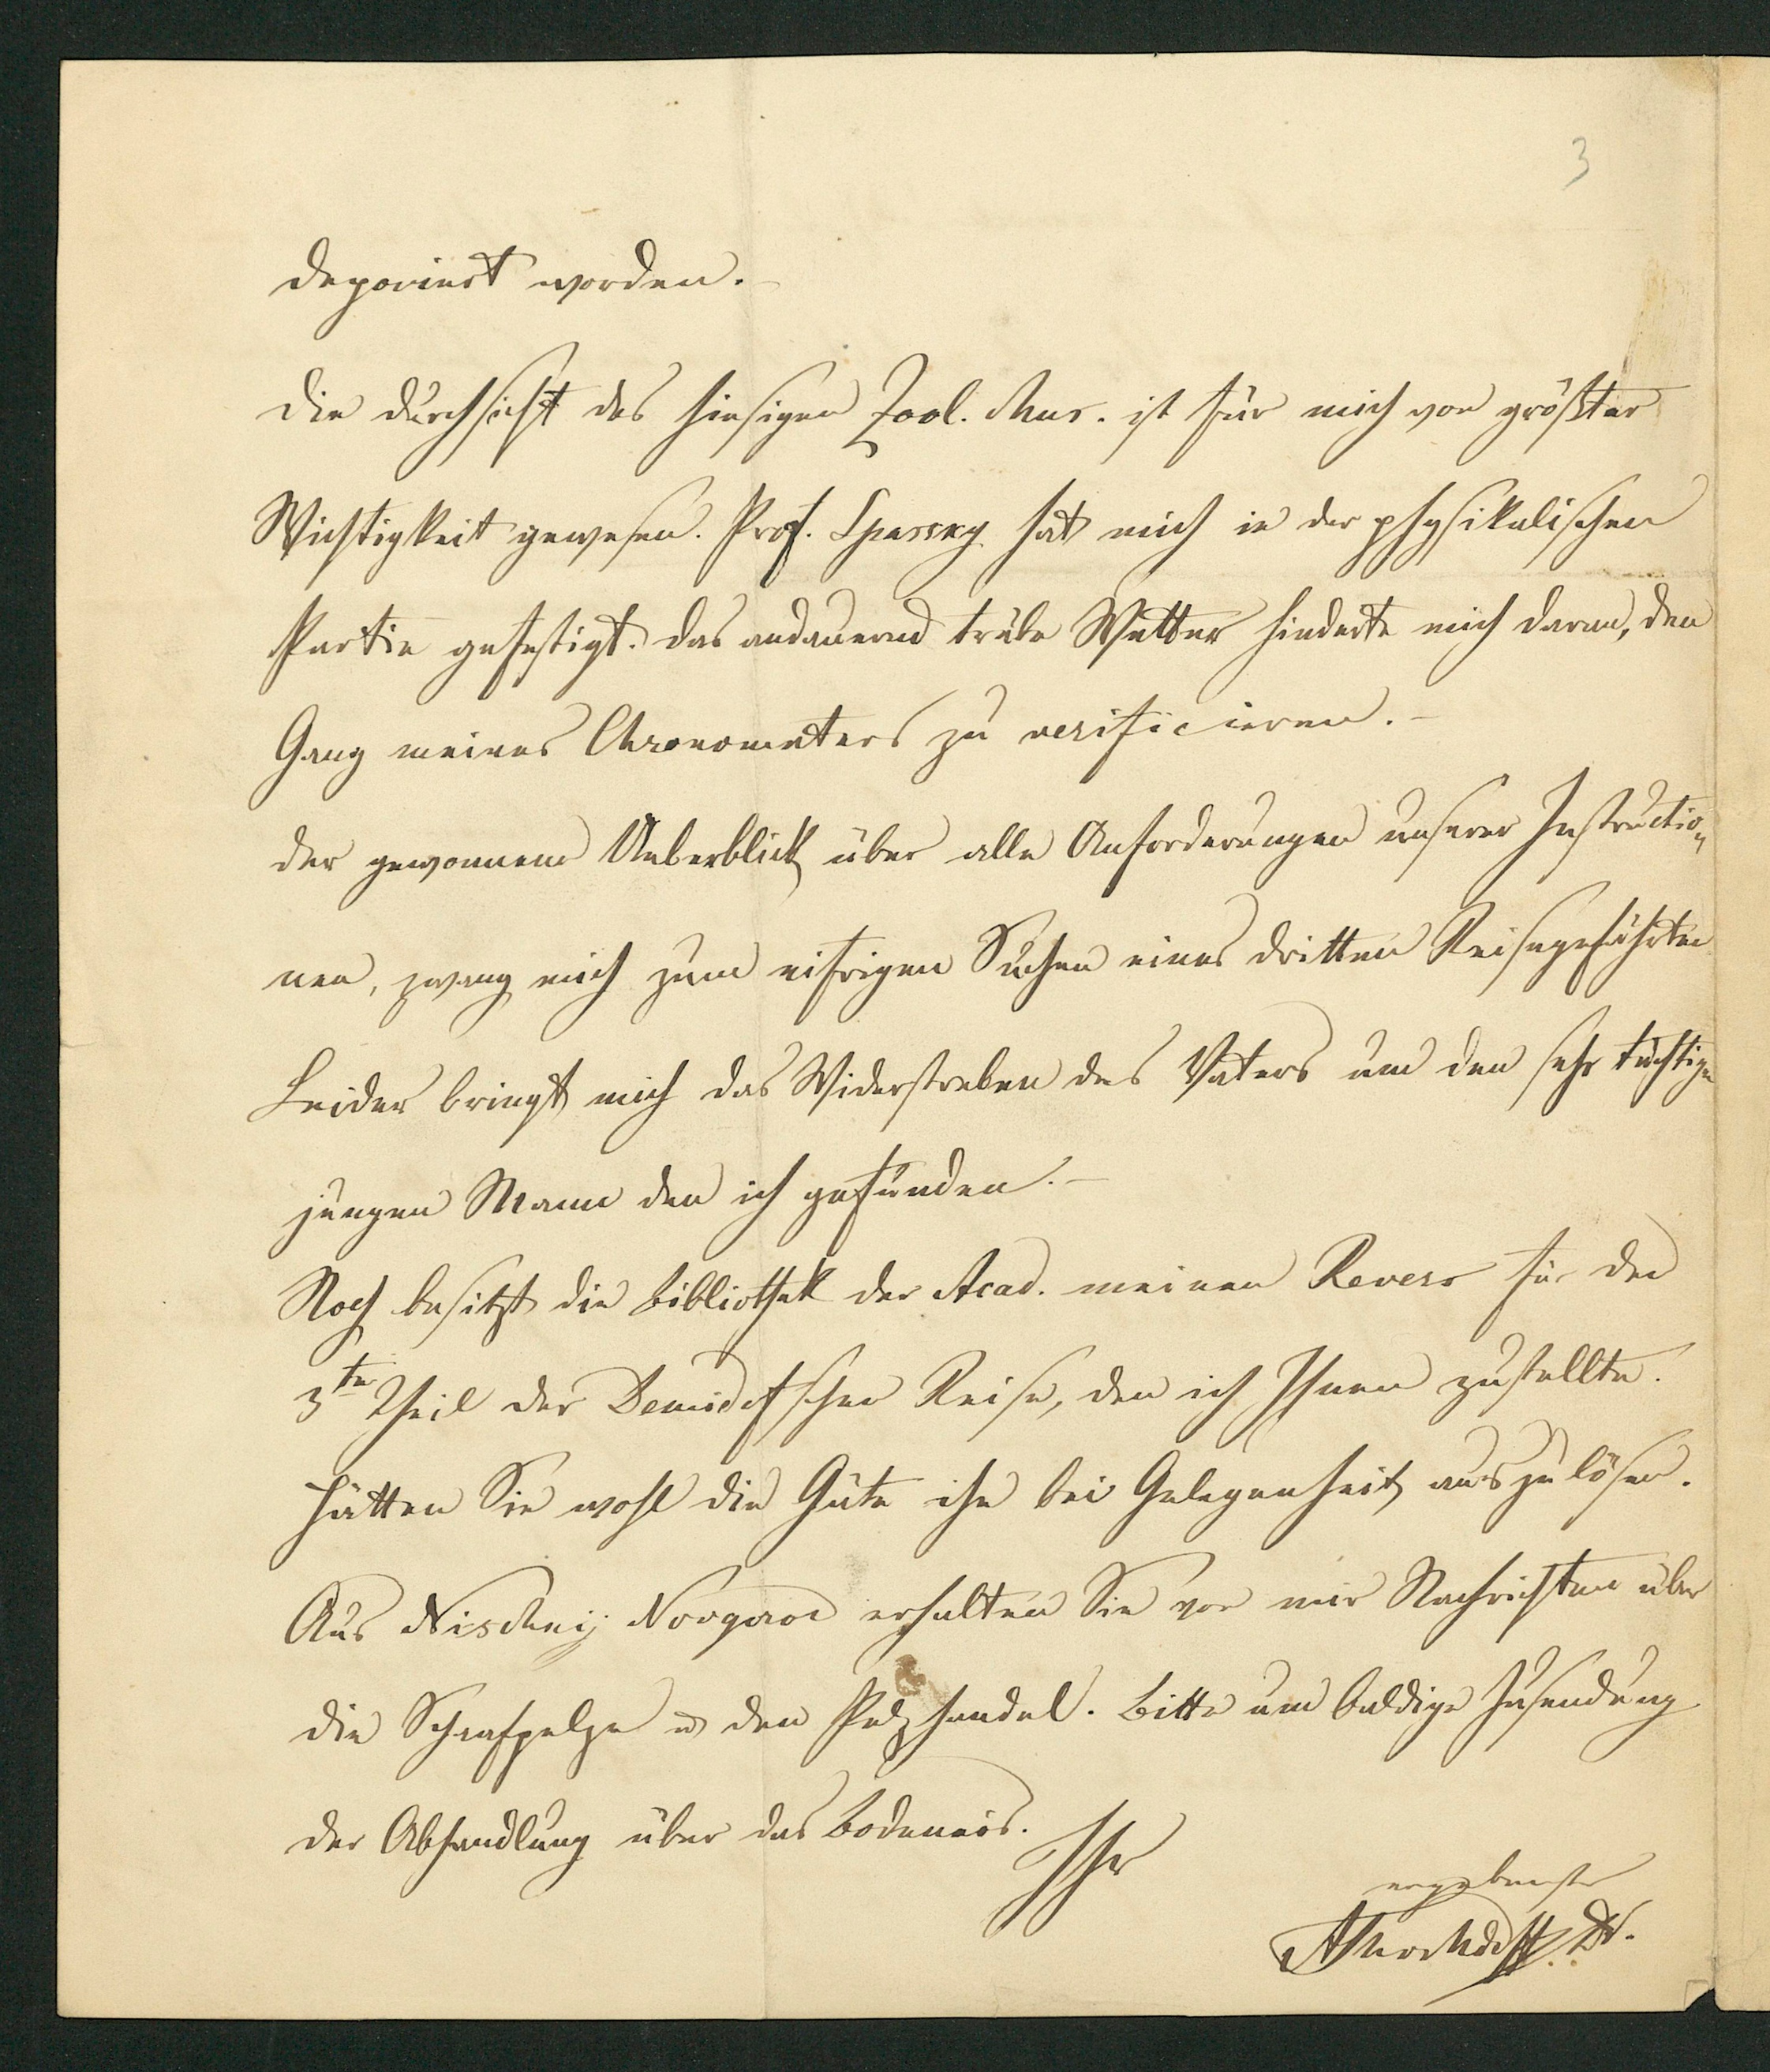 3
deponiert worden. –
Die Durchsicht des hiesigen Zool. Mus. ist für mich von größter
Wichtigkeit gewesen. Prof. Spassky hat mich in der physikalischen
Partie gefestigt. Das andauernd trübe Wetter hinderte mich daran, den
Gang meines Chronometers zu verificieren. –
Der gewonnene Ueberblick über alle Anforderungen unserer Instructio-
nen, zwang mich zum eifrigen Suchen eines dritten Reisegefährten
Leider bringt mich das Widerstreben des Vaters um den sehr tüchtigen
jungen Mann den ich gefunden. –
Noch besitzt die Bibliothek der Acad. meinen Revers für den
3ten Theil der Demidoffschen Reise, den ich Ihnen zustellte.
Hätten Sie wohl die Güte ihn bei Gelegenheit auszulösen.
Aus Nischnij Novgorod erhalten Sie von mir Nachrichten über
die Schafpelze u den Pelzhandel. Bitte um baldige Zusendung
der Abhandlung über das Bodeneis.
Ihr
ergebenster
AMiddendorff. Dr.